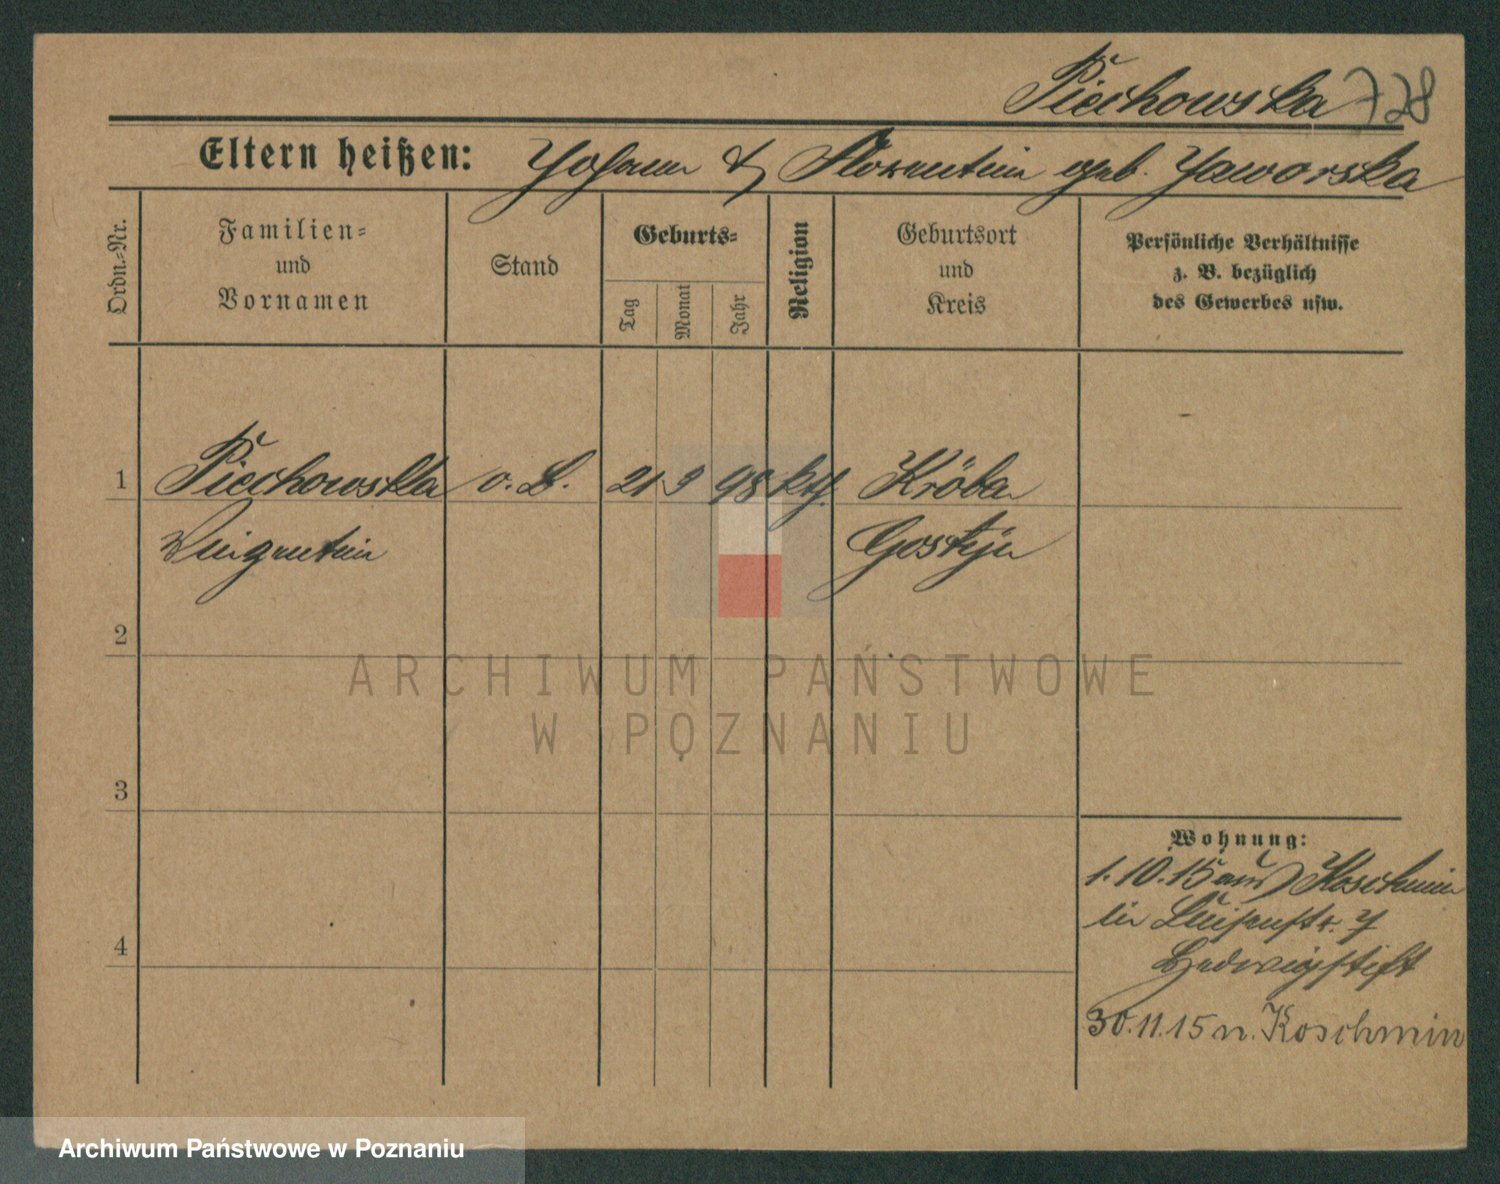 Piechowska 728
Eltern heißen: Johann & Florentin geb. Jaworska
Ordn.-Nr.
Familien-
und
Vornamen
Stand
Geburts-
Tag
Monat
Jahr
Religion
Geburtsort
und
Kreis
Persönliche Verhältnisse
z. B. bezüglich
des Gewerbes usw.
1 Piechowska o. B. 21 3 98 kth. Kröba
Gostyn
2
ARCHIWUM PAŃSTWOWE
W POZNANIU
3
Wohnung:
1.10.15 aus Koschmin
in Luisenstr. 7
Hedwigstift
4
30.11.15 n. Koschmin
Archiwum Państwowe w Poznaniu